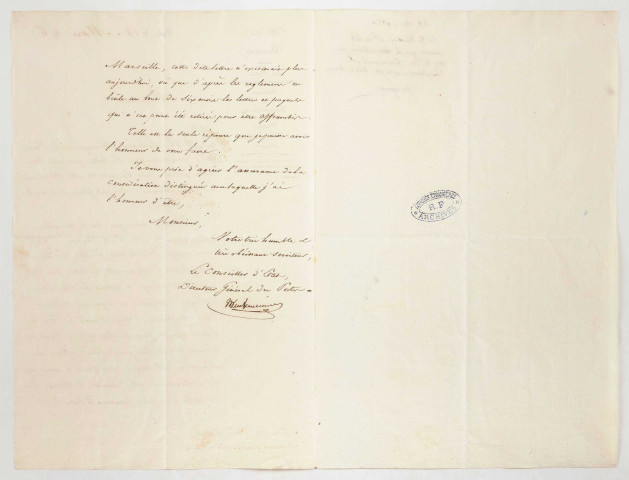 Marseille, cette dite lettre n'existerait plus
aujourd'hui, vu que d'après les règlements on
brûle au bout de six mois les lettres et paquets
qui n'ont pas été retirés pour être affranchis.
Telle est la seule réponse que je puisse avoir
l'honneur de vous faire.
Je vous prie d'agréer l'assurance de la
considération distinguée avec laquelle j'ai
l'honneur d'être,
Monsieur,
Votre très humble et
très obéissant serviteur,
Le Conseiller d'État,
Directeur Général des Postes
R.F
ARCHIVES